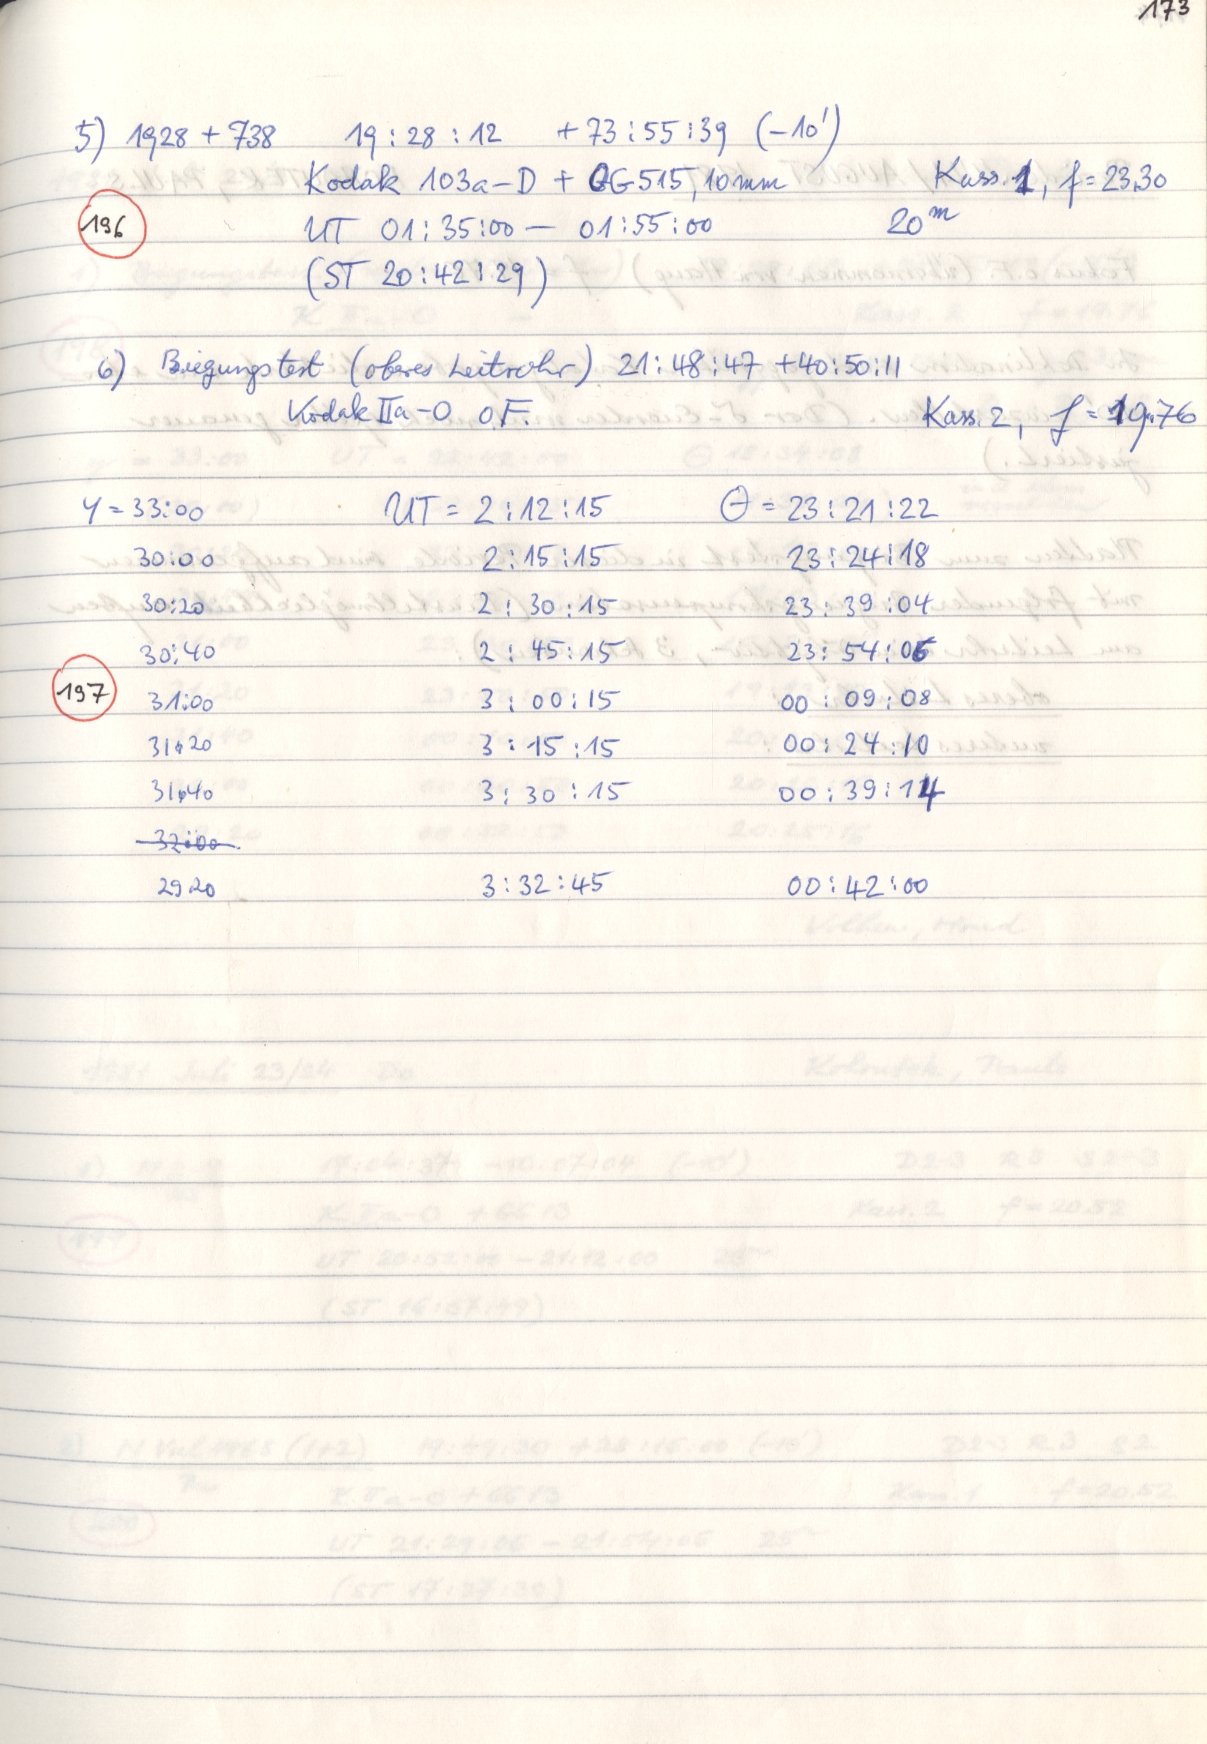 173
5) 1928 + 738 19:28:12 +73:55:39 (-10')
Kodak 103a-D + GG515, 10mm Kass. 1, f = 23.30
196 UT 01:35:00 — 01:55:00 20m
(ST 20:42:29)
6) Biegungstest (oberes Leitrohr) 21:48:47 +40:50:11
Kodak IIa-O o.F. Kass. 2, f = 19.76
Y = 33:00 UT = 2:12:15 Θ = 23:21:22
30:00 2:15:15 23:24:18
30:20 2:30:15 23:39:04
30:40 2:45:15 23:54:06
197 31:00 3:00:15 00:09:08
31:20 3:15:15 00:24:10
31:40 3:30:15 00:39:14
32:00
29:20 3:32:45 00:42:00